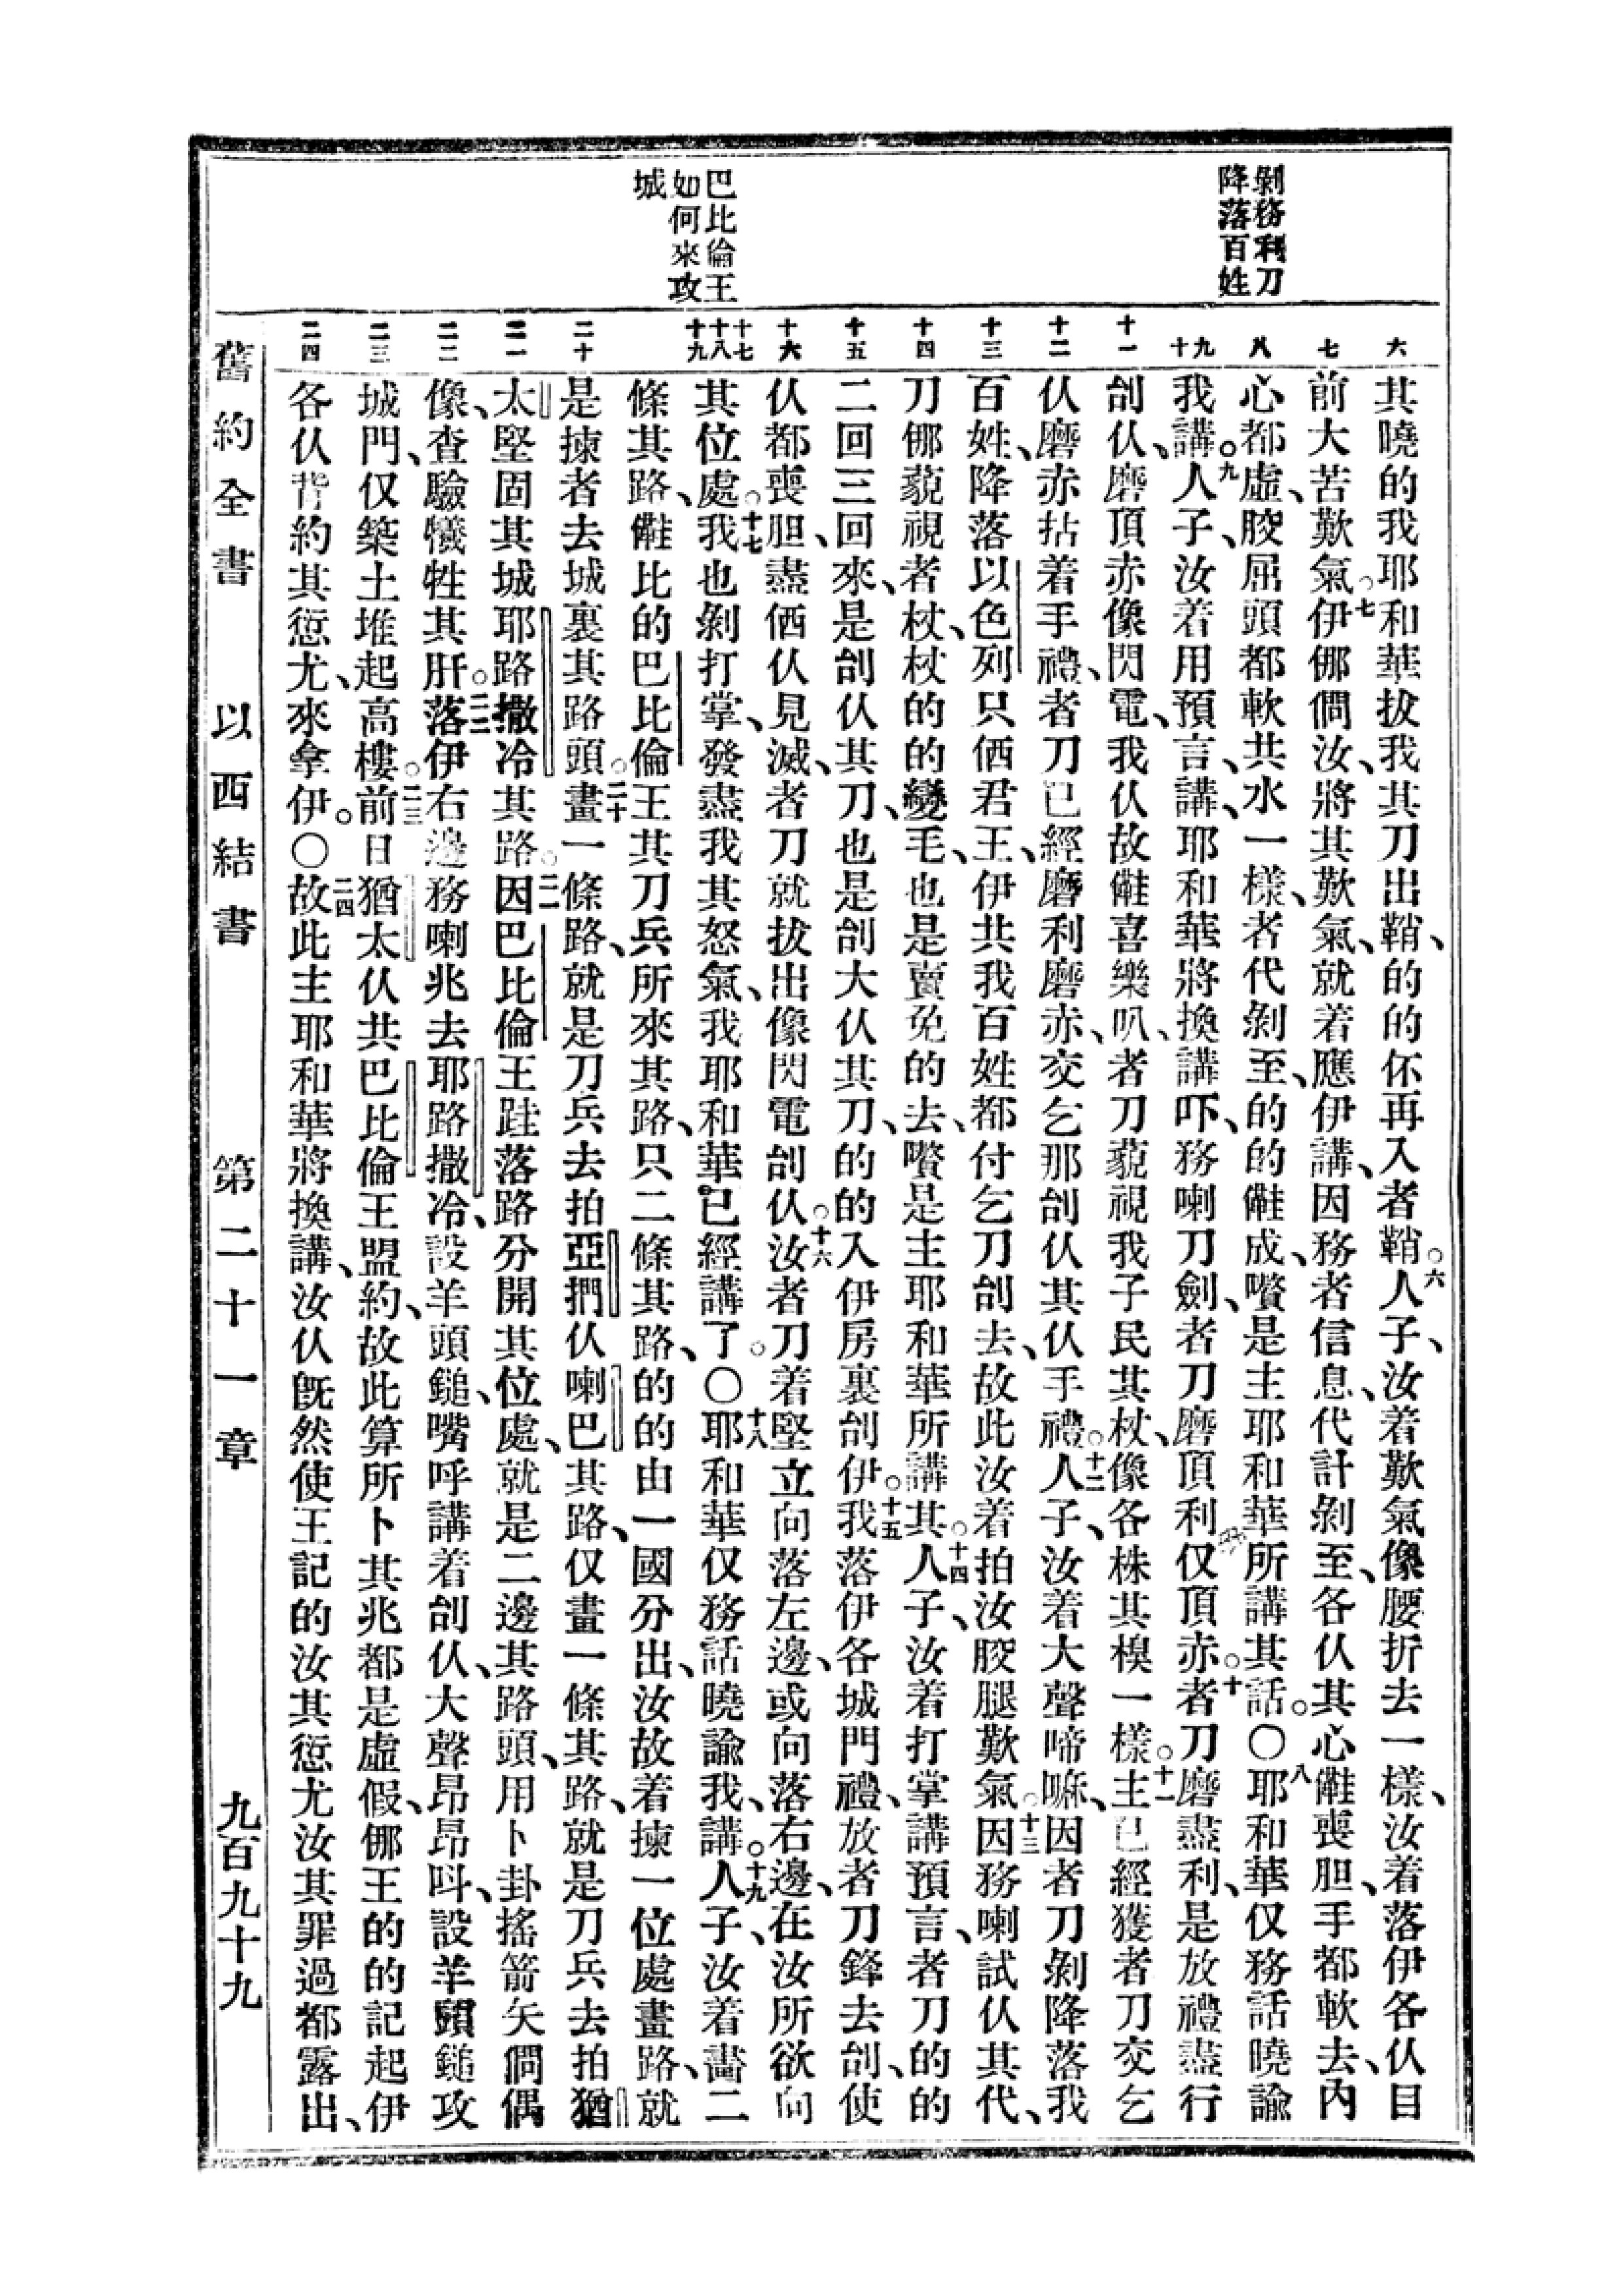 剝務利刀
降落百姓
巴比倫王
如何來攻
城
六
七
八
九
十
十一
十二
十三
十四
十五
十六
十七
十八
十九
二十
二一
二二
二三
二四
其曉的我耶和華拔我其刀出鞘、的的伓再入者鞘。六人子、汝着歎氣像腰折去一樣、汝着落伊各仈目
前大苦歎氣。七伊倻僩汝、將其歎氣、就着應伊講、因務者信息、代計剝至、各仈其心雔喪胆、手都軟去、內
心都虛、骹屈頭都軟共水一樣、者代剝至、的的雔成、嚽是主耶和華所講其話。〇八耶和華仅務話曉諭
我講。九人子、汝着用預言、講、耶和華將換講吓、務喇刀劍、者刀磨頂利仅頂赤。十者刀磨盡利、是放禮盡行
刣仈、磨頂赤像閃電、我仈故雔喜樂叭、者刀藐視我子民其杖、像各株其樣一樣。十一主已經獲者刀交乞
仈磨赤拈着手禮、者刀已經磨利磨赤、交乞那刣仈其仈手禮。十二人子、汝着大聲啼嘛、因者刀剝降落我
百姓、降落以色列只伵君王、伊共我百姓都付乞刀刣去、故此汝着拍汝骹腿歎氣。十三因務喇試仈其代、
刀倻藐視者杖、杖的的變毛、也是賣免的去、嚽是主耶和華所講其。十四人子、汝着打掌講預言、者刀的的
二回三回來、是刣仈其刀、也是刣大仈其刀、的的入伊房裏刣伊。十五我落伊各城門禮、放者刀鋒去刣、使
仈都喪胆、盡伵仈見滅、者刀就拔出像閃電刣仈。十六汝者刀着堅立向落左邊、或向落右邊、在汝所欲向
其位處。十七我也剝打掌、發盡我其怒氣、我耶和華已經講了。〇十八耶和華仅務話曉諭我、講。十九人子、汝着畵二
條其路、雔比的巴比倫王其刀兵所來其路、只二條其路、的的由一國分出、汝故着揀一位處畫路、就
是揀者去城裏其路頭。二十畫一條路、就是刀兵去拍亞捫仈喇巴其路、仅畫一條其路、就是刀兵去拍猶
太堅固其城耶路撒冷其路。二一因巴比倫王跬落路分開其位處、就是二邊其路頭、用卜卦搖箭矢僩偶
像、查驗犧牲其肝。二二落伊右邊務喇兆去耶路撒冷、設羊頭鎚、嘴呼講着刣仈、大聲昂昂呌、設羊頭鎚攻
城門、仅築土堆起高樓。二三前日猶太仈共巴比倫王盟約、故此算所卜其兆都是虛假、倻王的的記起伊
各仈背約其愆尤、來拿伊。〇二四故此主耶和華將換講、汝仈旣然使王記的汝其愆尤汝其罪過都露出、
舊約全書 以西結書 第二十一章 九百九十九